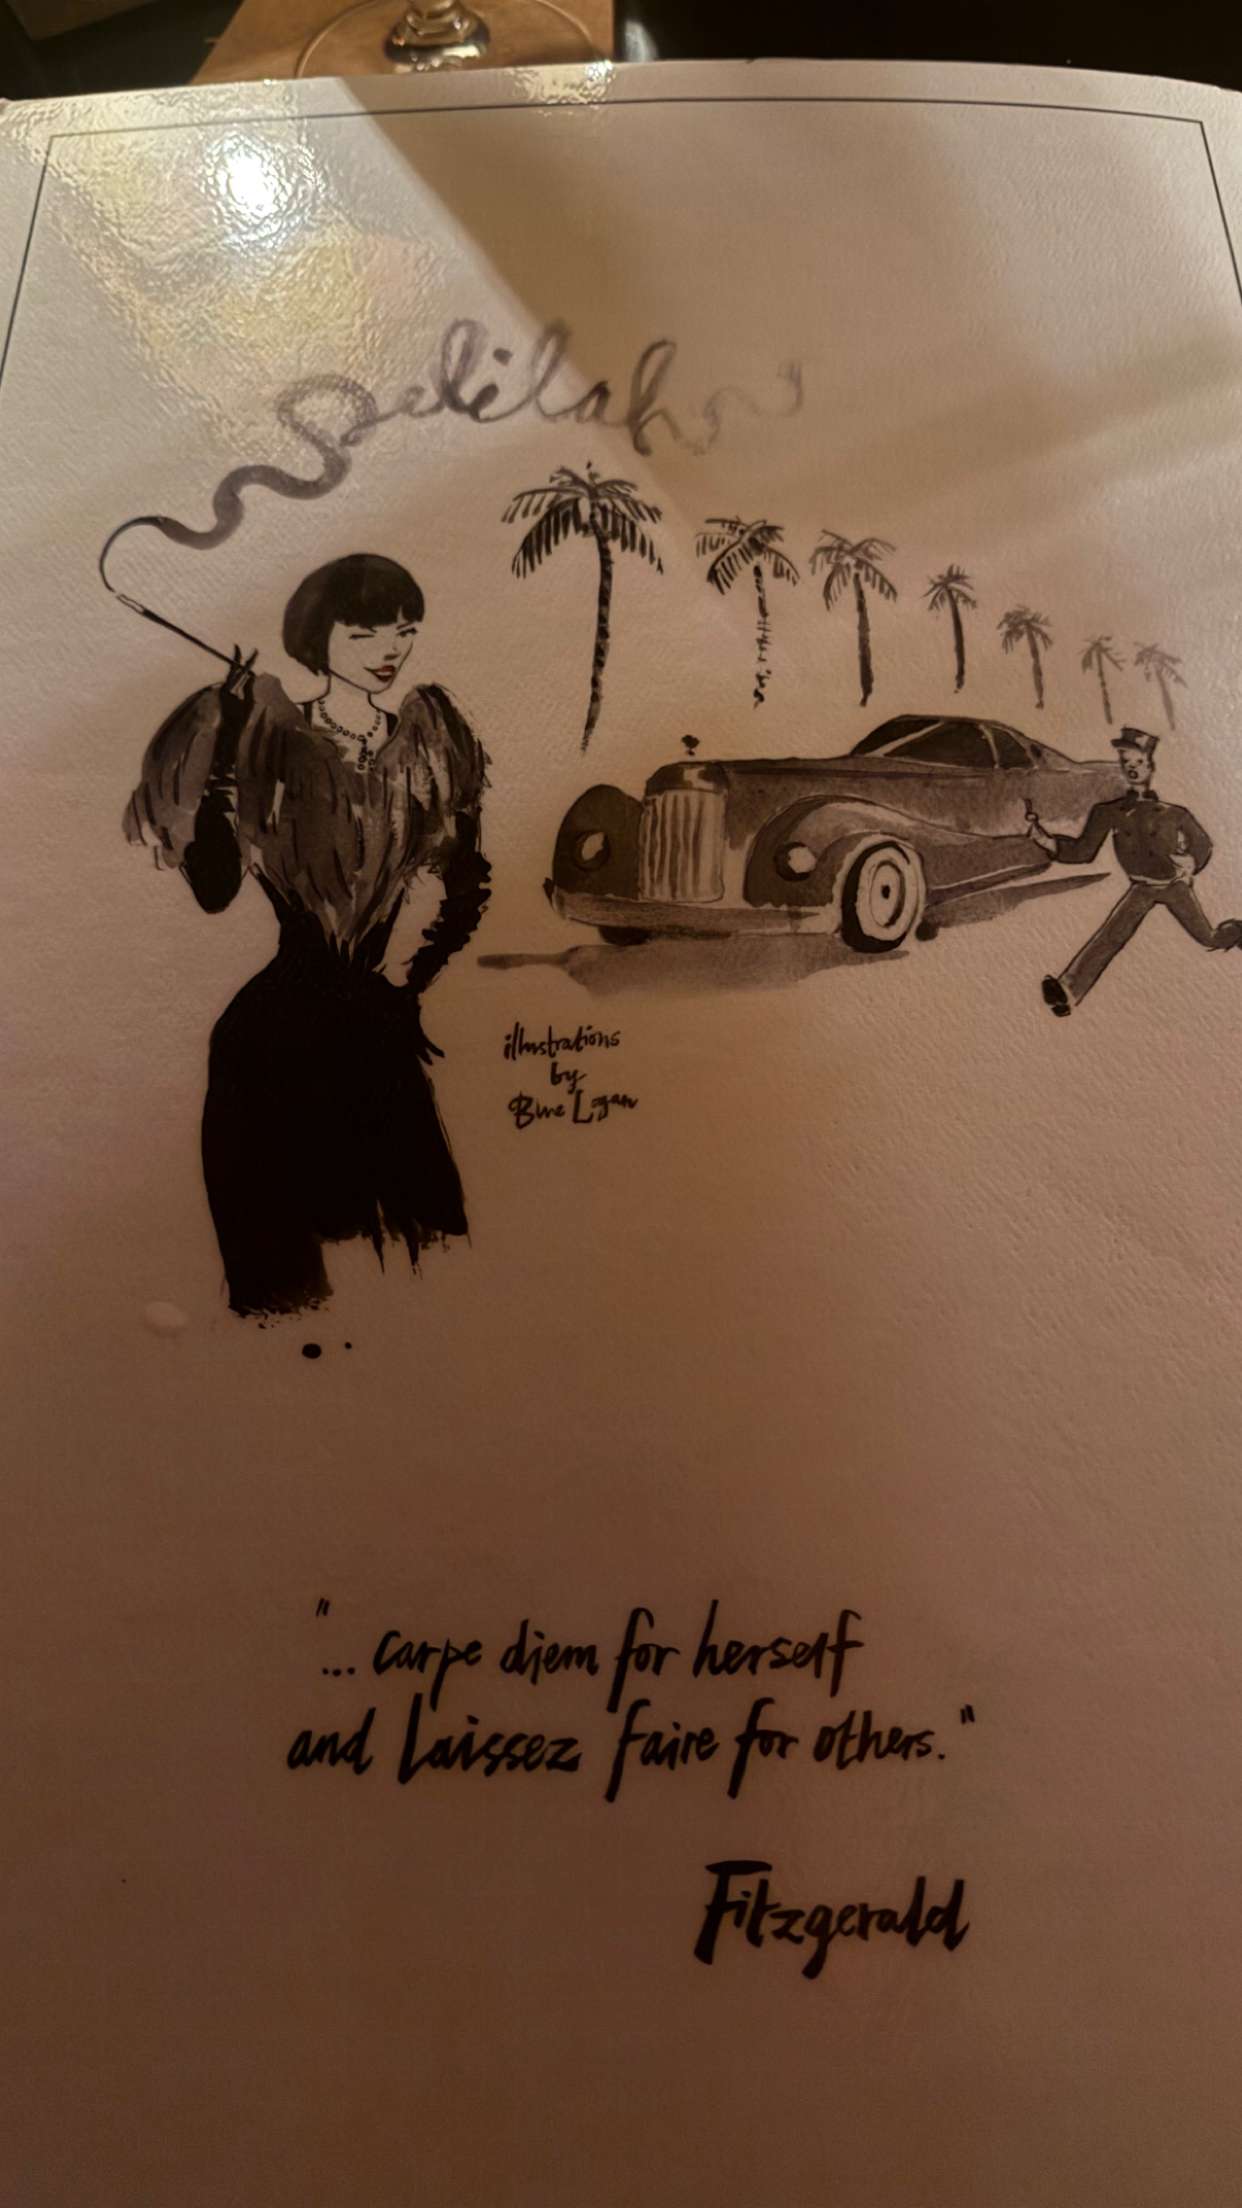 delilah
illustrations
by
Blue Logan
"... carpe diem for herself
and laissez faire for others."
Fitzgerald